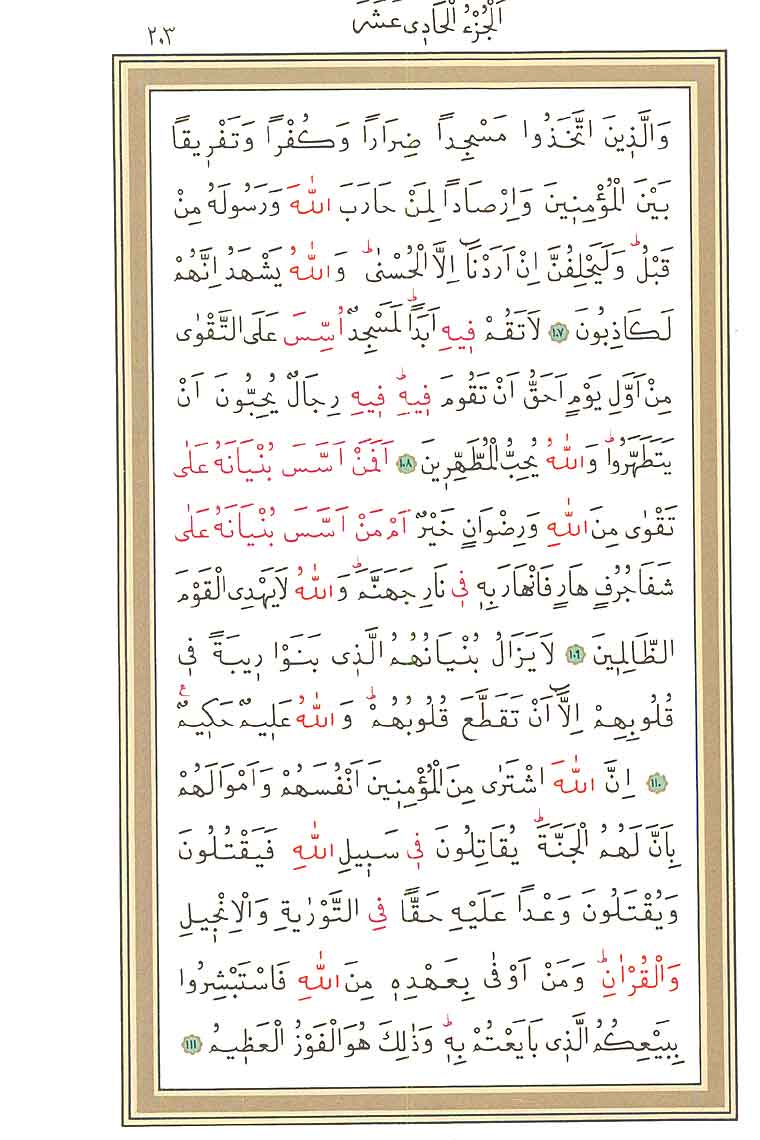 اَلْجُزْءُ الْحَادِي عَشَرَ
٢٠٣
وَالَّذِينَ اتَّخَذُوا مَسْجِدًا ضِرَارًا وَكُفْرًا وَتَفْرِيقًا
بَيْنَ الْمُؤْمِنِينَ وَاِرْصَادًا لِمَنْ حَارَبَ اللّٰهَ وَرَسُولَهُ مِنْ
قَبْلُ ۜ وَلَيَحْلِفُنَّ اِنْ اَرَدْنَٓا اِلَّا الْحُسْنٰى ۜ وَاللّٰهُ يَشْهَدُ اِنَّهُمْ
لَكَاذِبُونَ ١٠٧ لَا تَقُمْ فِيهِ اَبَدًا ۜ لَمَسْجِدٌ اُسِّسَ عَلَى التَّقْوٰى
مِنْ اَوَّلِ يَوْمٍ اَحَقُّ اَنْ تَقُومَ فِيهِ ۜ فِيهِ رِجَالٌ يُحِبُّونَ اَنْ
يَتَطَهَّرُوا ۜ وَاللّٰهُ يُحِبُّ الْمُطَّهِّرِينَ ١٠٨ اَفَمَنْ اَسَّسَ بُنْيَانَهُ عَلٰى
تَقْوٰى مِنَ اللّٰهِ وَرِضْوَانٍ خَيْرٌ اَمْ مَنْ اَسَّسَ بُنْيَانَهُ عَلٰى
شَفَا جُرُفٍ هَارٍ فَانْهَارَ بِهِ فِي نَارِ جَهَنَّمَ ۜ وَاللّٰهُ لَا يَهْدِي الْقَوْمَ
الظَّالِمِينَ ١٠٩ لَا يَزَالُ بُنْيَانُهُمُ الَّذِي بَنَوْا رِيبَةً فِي
قُلُوبِهِمْ اِلَّٓا اَنْ تَقَطَّعَ قُلُوبُهُمْ ۜ وَاللّٰهُ عَلِيمٌ حَكِيمٌ ع
١١٠ اِنَّ اللّٰهَ اشْتَرٰى مِنَ الْمُؤْمِنِينَ اَنْفُسَهُمْ وَاَمْوَالَهُمْ
بِاَنَّ لَهُمُ الْجَنَّةَ ۜ يُقَاتِلُونَ فِي سَبِيلِ اللّٰهِ فَيَقْتُلُونَ
وَيُقْتَلُونَ وَعْدًا عَلَيْهِ حَقًّا فِي التَّوْرٰيةِ وَالْاِنْجِيلِ
وَالْقُرْاٰنِ ۜ وَمَنْ اَوْفٰى بِعَهْدِهِ مِنَ اللّٰهِ فَاسْتَبْشِرُوا
بِبَيْعِكُمُ الَّذِي بَايَعْتُمْ بِهِ ۜ وَذٰلِكَ هُوَ الْفَوْزُ الْعَظِيمُ ١١١